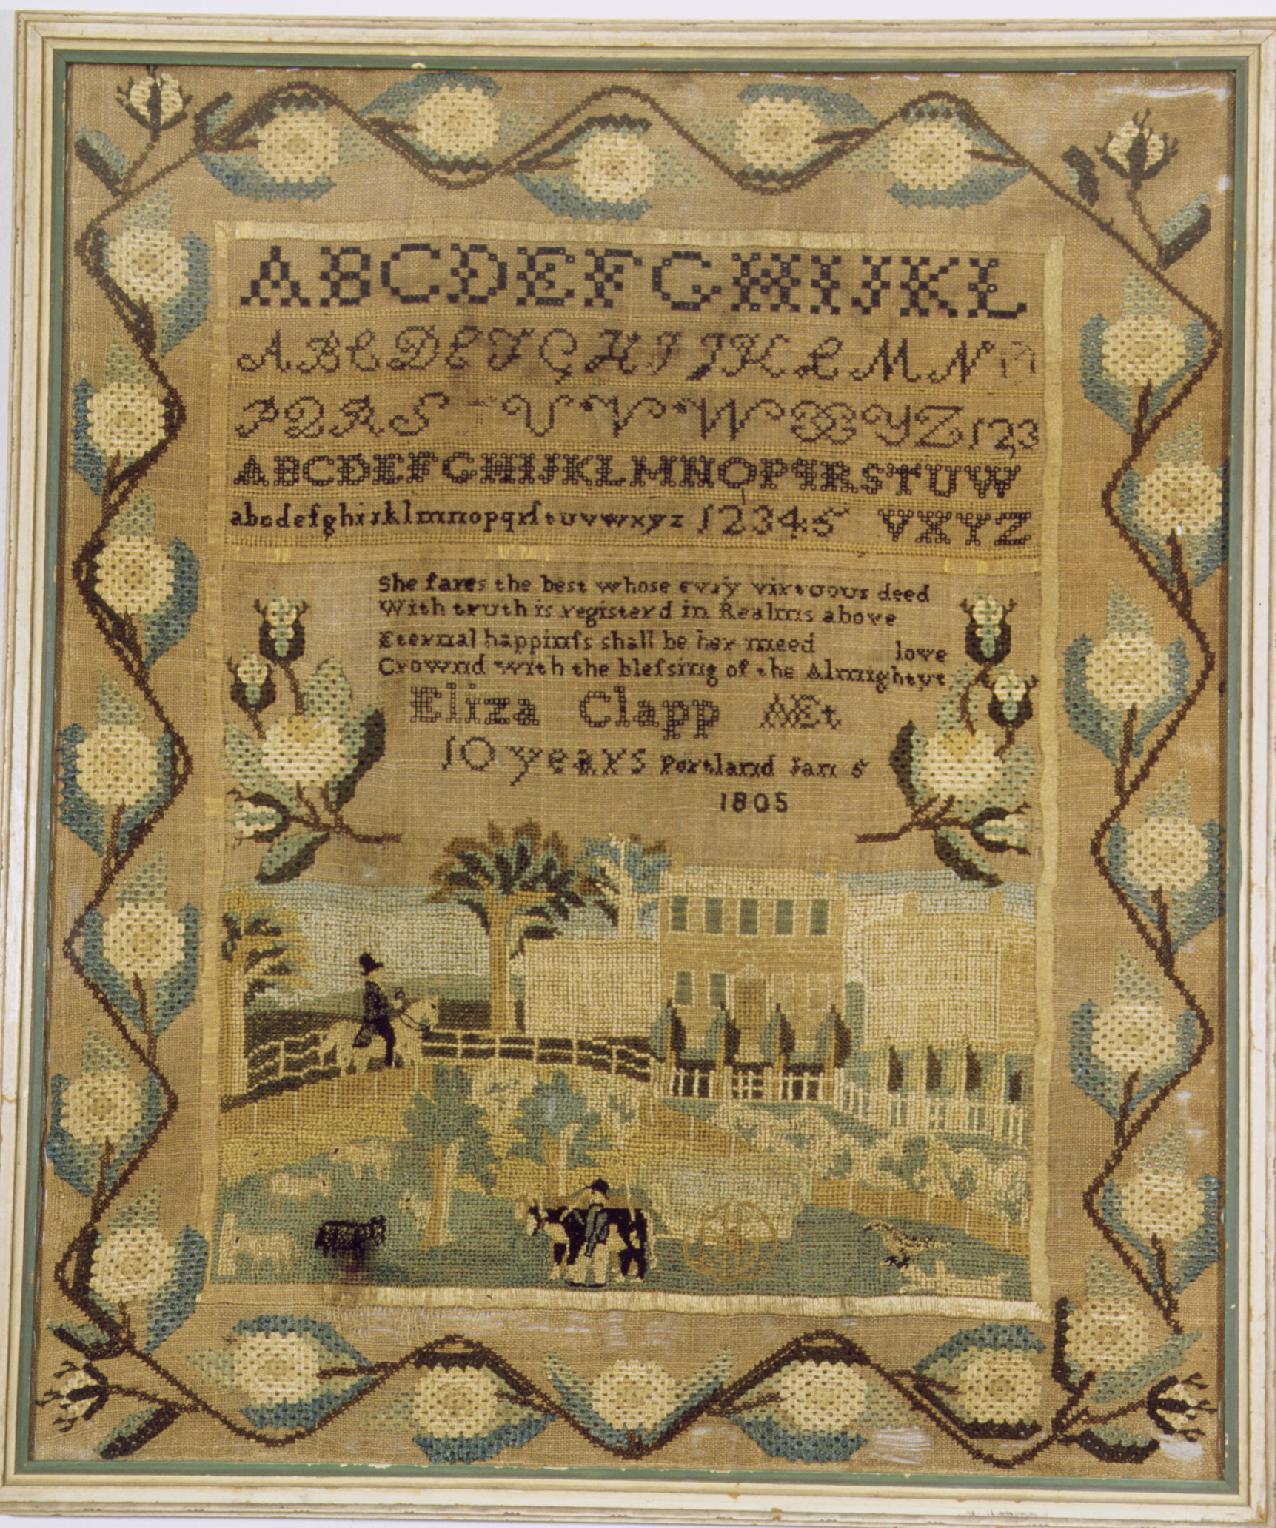 ABCDEFGHIJKL
ABCDEFGHIJKLMNO
PQRS UVWXYZ123
ABCDEFGHIJKLMNOPQRSTUW
abcdefghijklmnopqrſtuvwxyz 12345 VXYZ
She fares the best whose evry virtuous deed
With truth is registerd in Realms above
Eternal happinſs shall be her meed love
Crownd with the bleſsing of the Almightys
Eliza Clapp ÆEt
10 years Portland Jan 5
1805